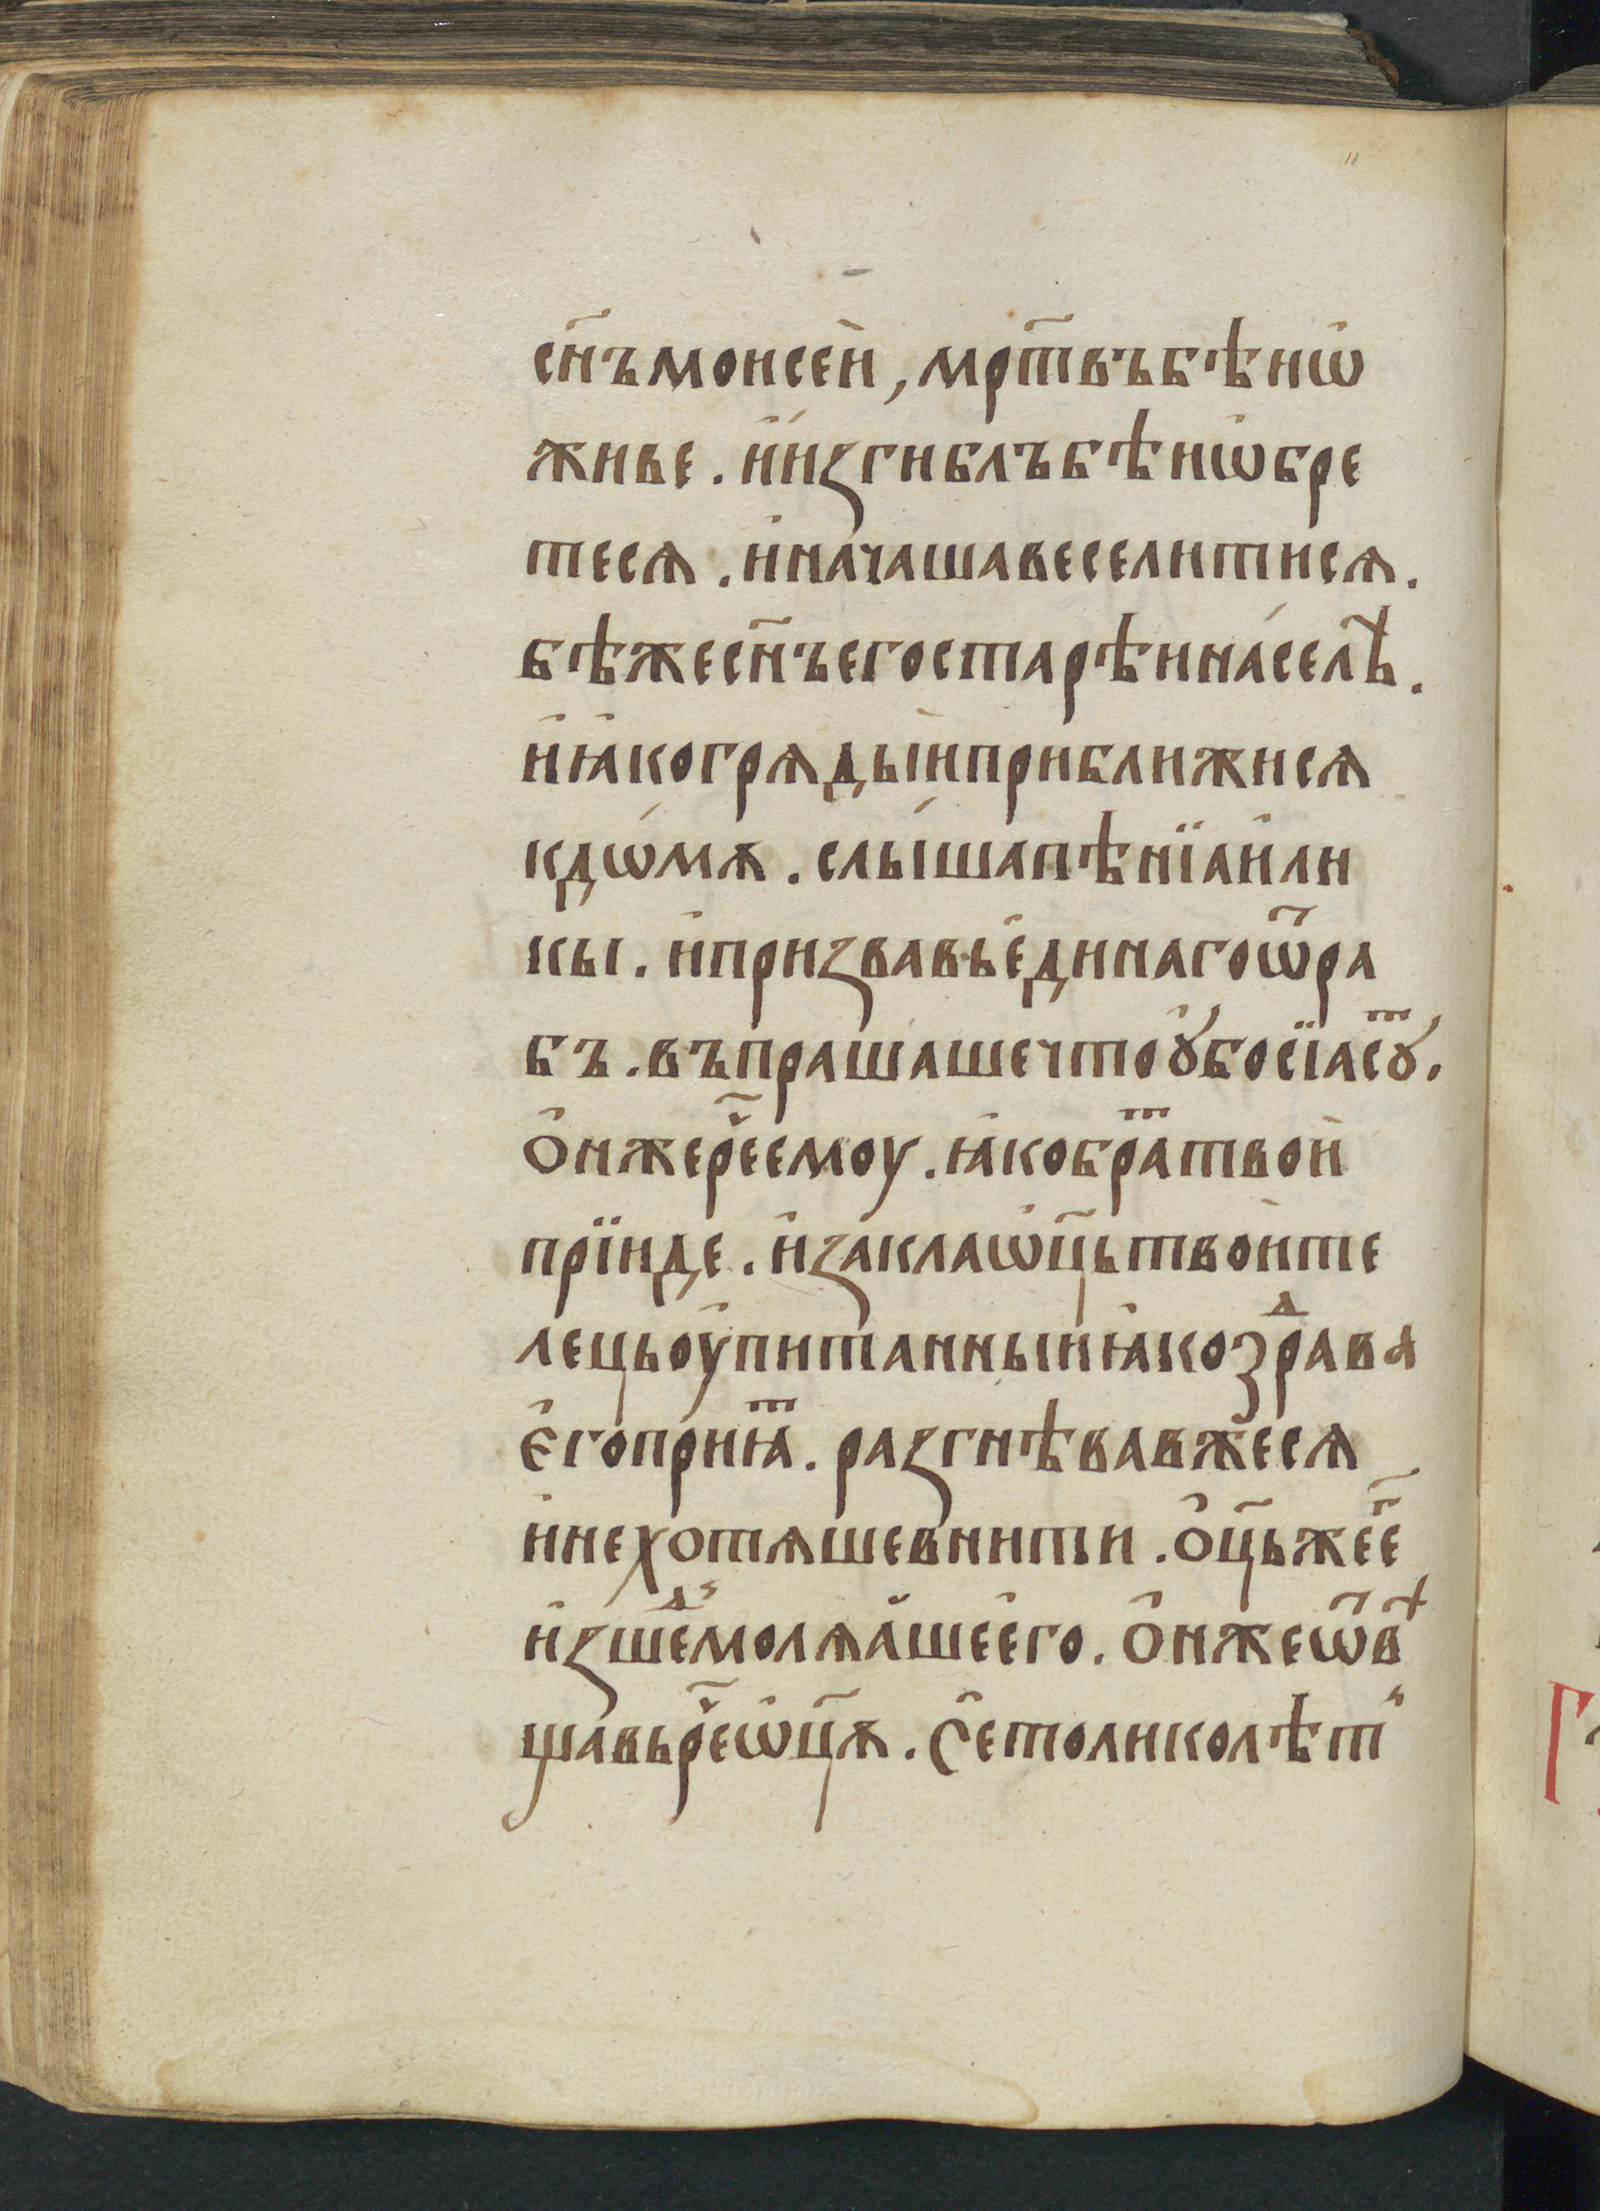 сн҃ъмоисеи̇, мрт҃въбѣиѡ̇
живе. и̇и́згиблъбѣиѡ̇бре
тесѧ. и̇начашавеселитисѧ.
бѣжесн҃ъегостарѣина́селѣ̀.
и̇ꙗ̇когрѧды́и̇приближисѧ
кдѡ́мѧ. слы́шапѣнїаи̇ли
кы. и̇призвавье̇динагоѿра
бъ. въпрашашечтоꙋ̇босїасꙋⷮ.
ѻ̇нжере҃емоу. ꙗ̇кобраⷮтвои̇
прїиде. и̇закл̇аѡ̇ц҃ьтвои̇те
лецьоу̇питанныиꙗ̇коздⷣрава
є̇гоприꙗⷮ. разгнѣвавжесѧ
и̇нехотѧшевнити. ѻ̇ц҃ьжее҃
и̇зшеⷣмолѧа̇шеего. ѻ̇нжеѿвⷺ
щавьре҃ѡ̇ц҃ѧ. се̇толиколѣт